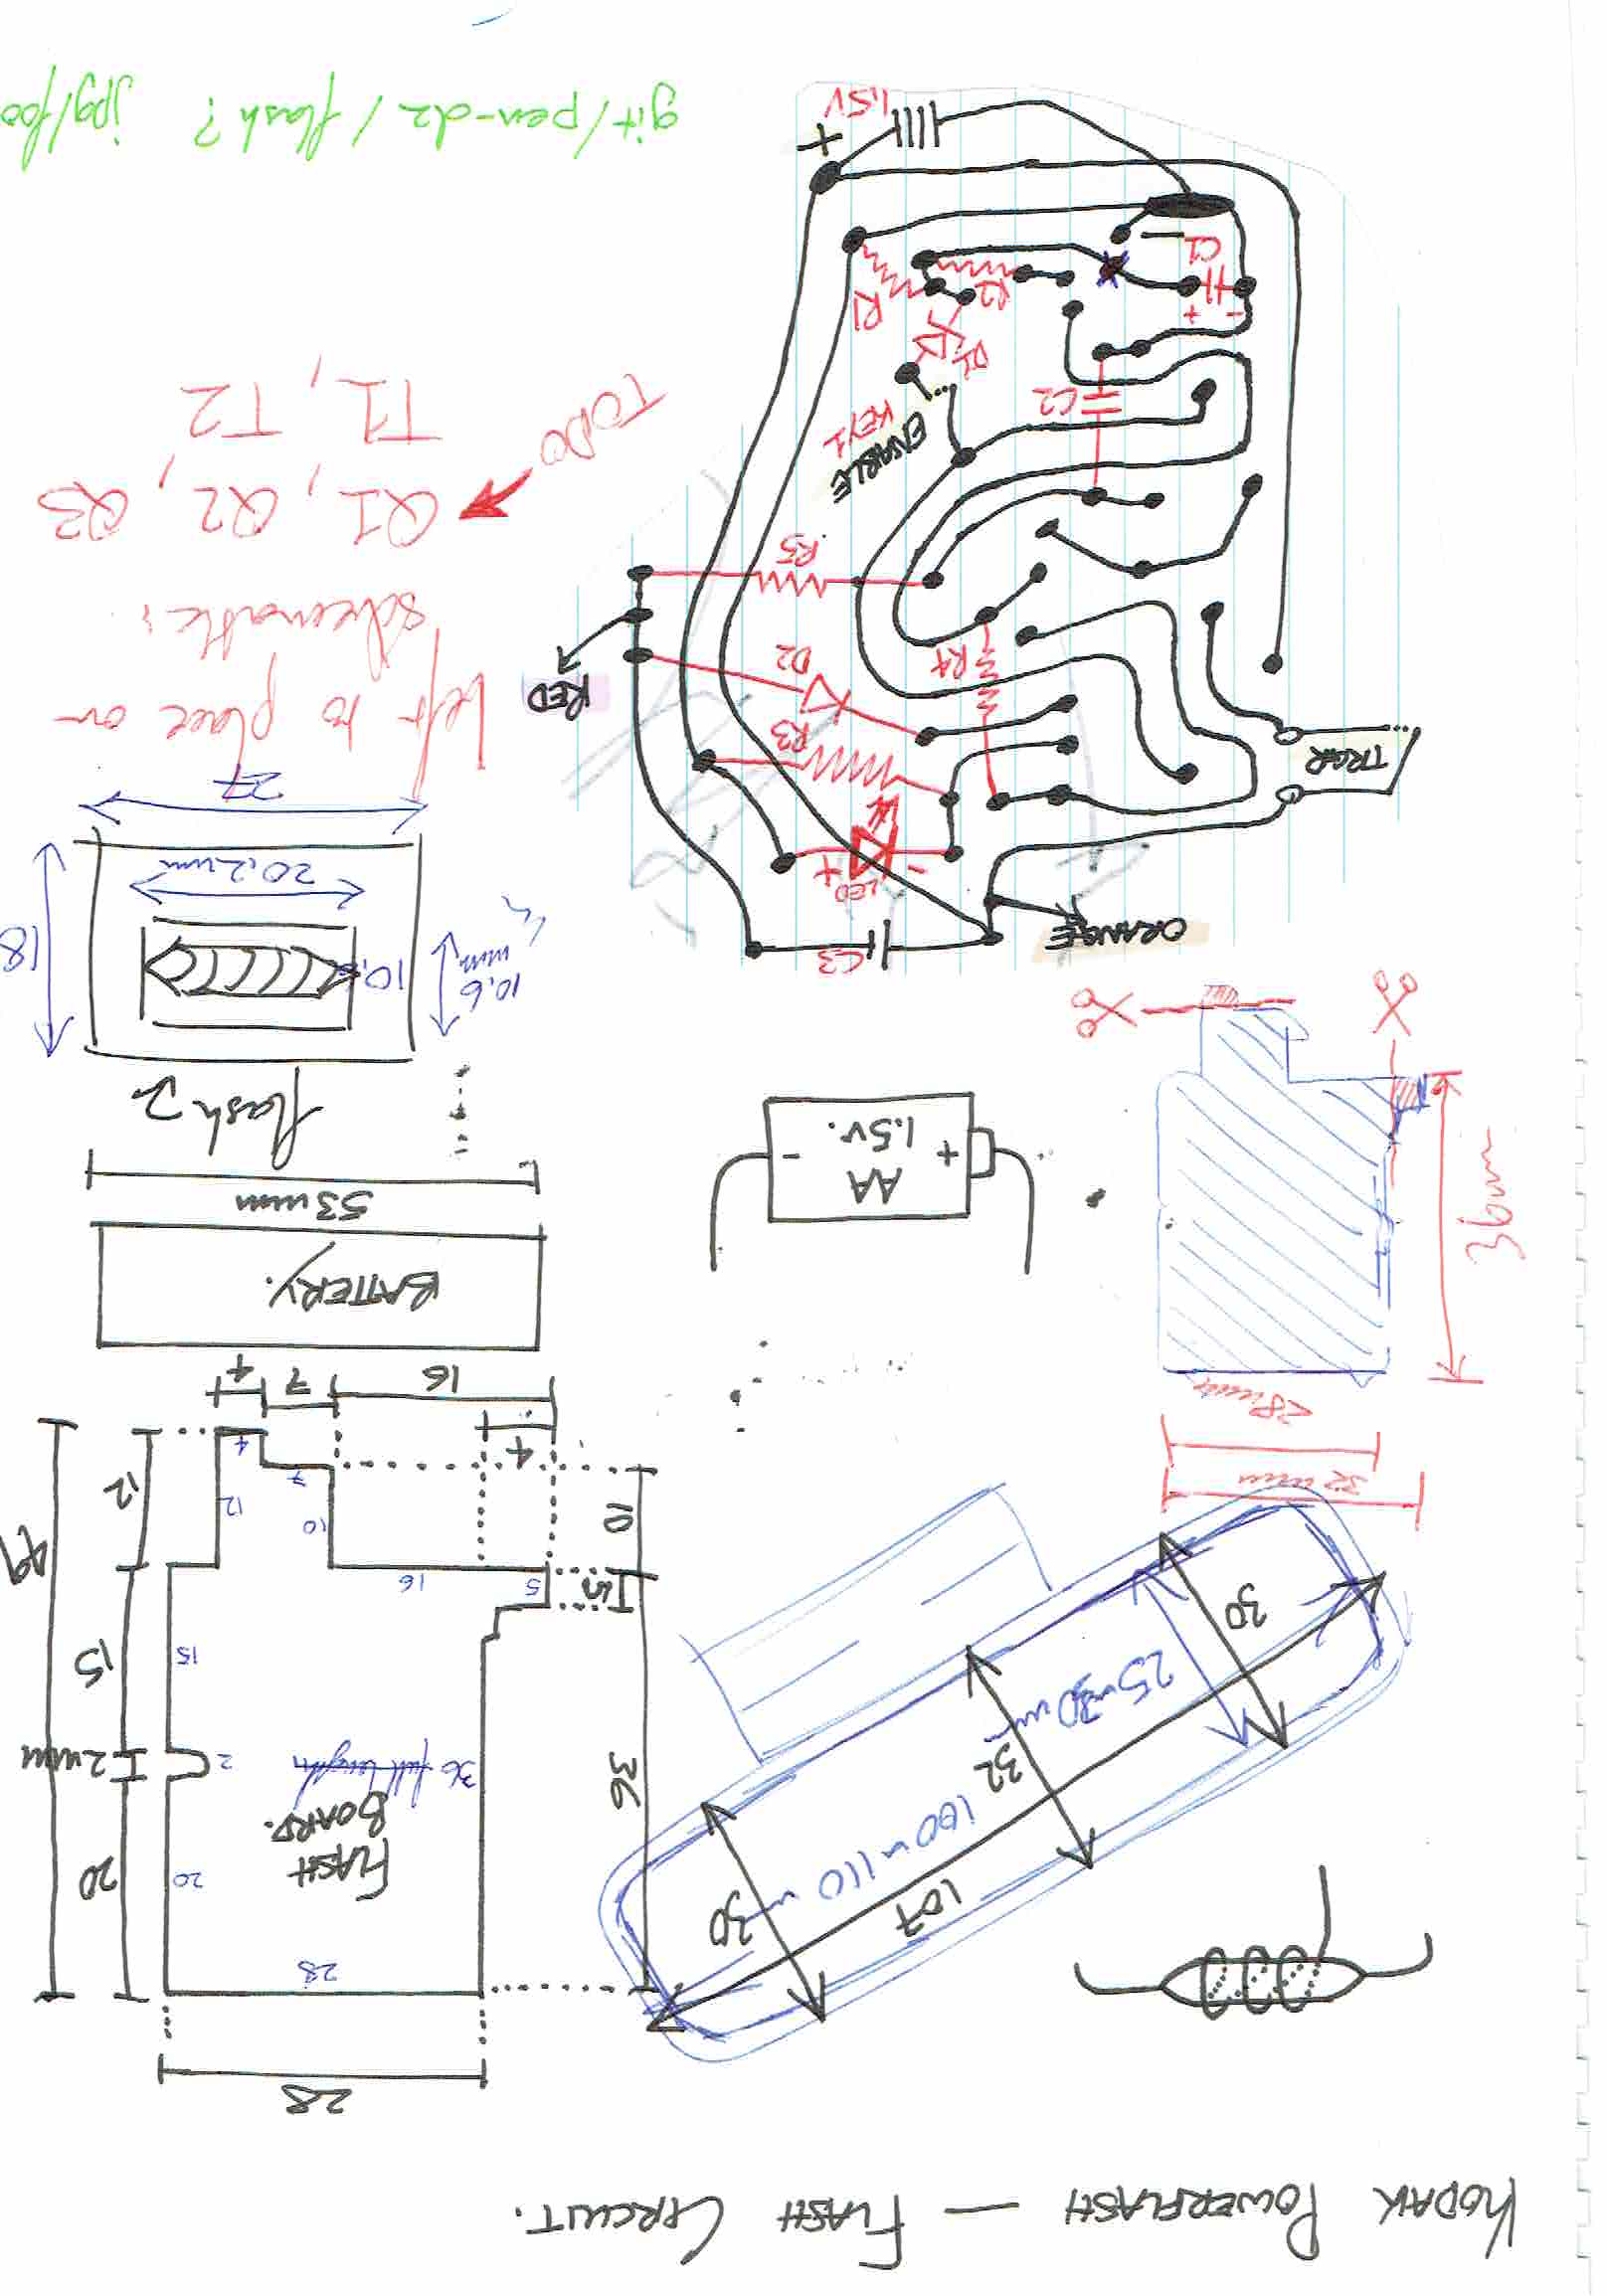 KODAK POWERFLASH — FLASH CIRCUIT.
28
28
107
100~110
30
32
25~30mm
30
36
FLASH
BOARD.
36 full length
20
20
2
2mm
15
15
49
5
5
16
10
10
12
12
7
4
4
16
7
4
32mm
28mm
36mm
BATTERY.
53mm
AA
1.5v.
+
-
flash
10.6
mm
10.6
18
20.2mm
27
ORANGE
C3
LED
-
+
TRGR
R3
D2
R4
RED
R5
ENABLE
KEY1
C2
D1
R2
R1
-
+
C1
+
1.5V
Left to place on
schematic:
TODO
Q1, Q2, Q3
T1, T2
git/pen-dz/flash? jpg/foo